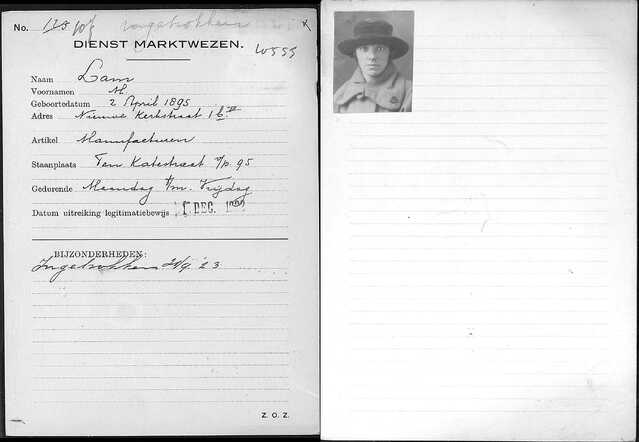 No. 128 ingetrokken
DIENST MARKTWEZEN.
Naam Lam
Voornamen M.
Geboortedatum 2 April 1895
Adres Nieuwe Kerkstraat 16 II
Artikel Manufacturen
Staanplaats Ten Katestraat v/p. 95
Gedurende Maandag t/m. Vrijdag
Datum uitreiking legitimatiebewijs 1 DEC.
BIJZONDERHEDEN:
Ingetrokken '23
Z. O. Z.